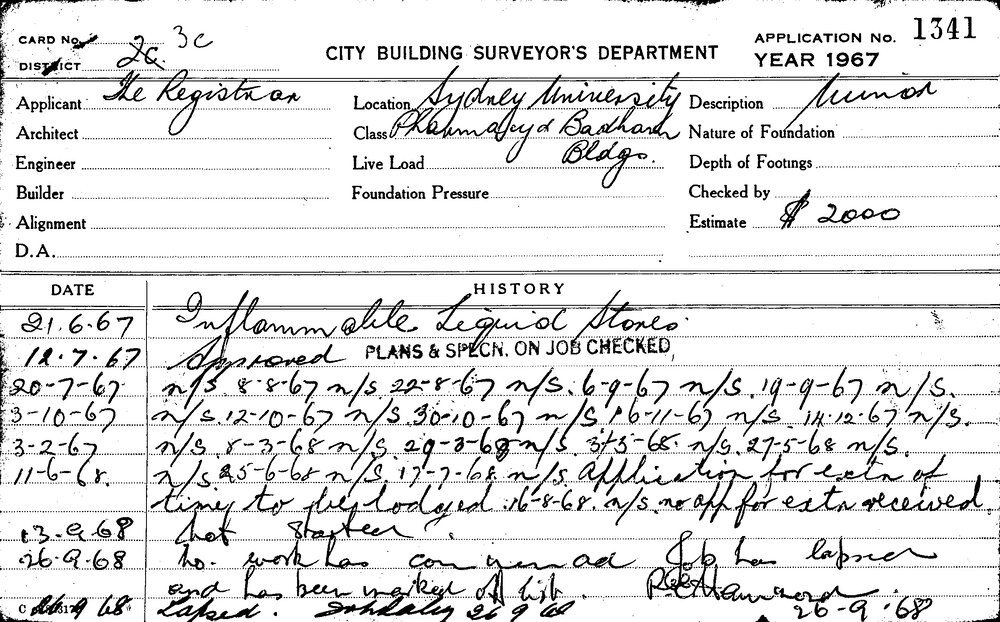 CARD No. 2c 3c
DISTRICT
CITY BUILDING SURVEYOR'S DEPARTMENT
APPLICATION No. 1341
YEAR 1967
Applicant The Registrar
Architect
Engineer
Builder
Alignment
D.A.
Location Sydney University
Class Pharmacy & Badham
Live Load Bldgs.
Foundation Pressure
Description Minor
Nature of Foundation
Depth of Footings
Checked by
Estimate $ 2000
DATE HISTORY
21.6.67 Inflammable Liquid Stores.
12.7.67 Approved PLANS & SPECN. ON JOB CHECKED
20-7-67 n/s. 8-8-67 n/s. 22-8-67 n/s. 6-9-67 n/s. 19-9-67 n/s.
3-10-67 n/s. 12-10-67 n/s. 30-10-67 n/s. 16-11-67 n/s. 14-12-67 n/s.
3-2-67 n/s. 8-3-68 n/s. 29-3-68 n/s. 3-5-68. n/s. 27-5-68 n/s.
11-6-68. n/s 25-6-68 n/s. 17-7-68. n/s. Application for extn of
time to be lodged. 16-8-68. n/s. no app for extn received.
13-9-68 Not started.
26-9-68 No. work has commenced Job has lapsed
and has been marked off list. 26-9-68
26 9 68 Lapsed. 26 9 68